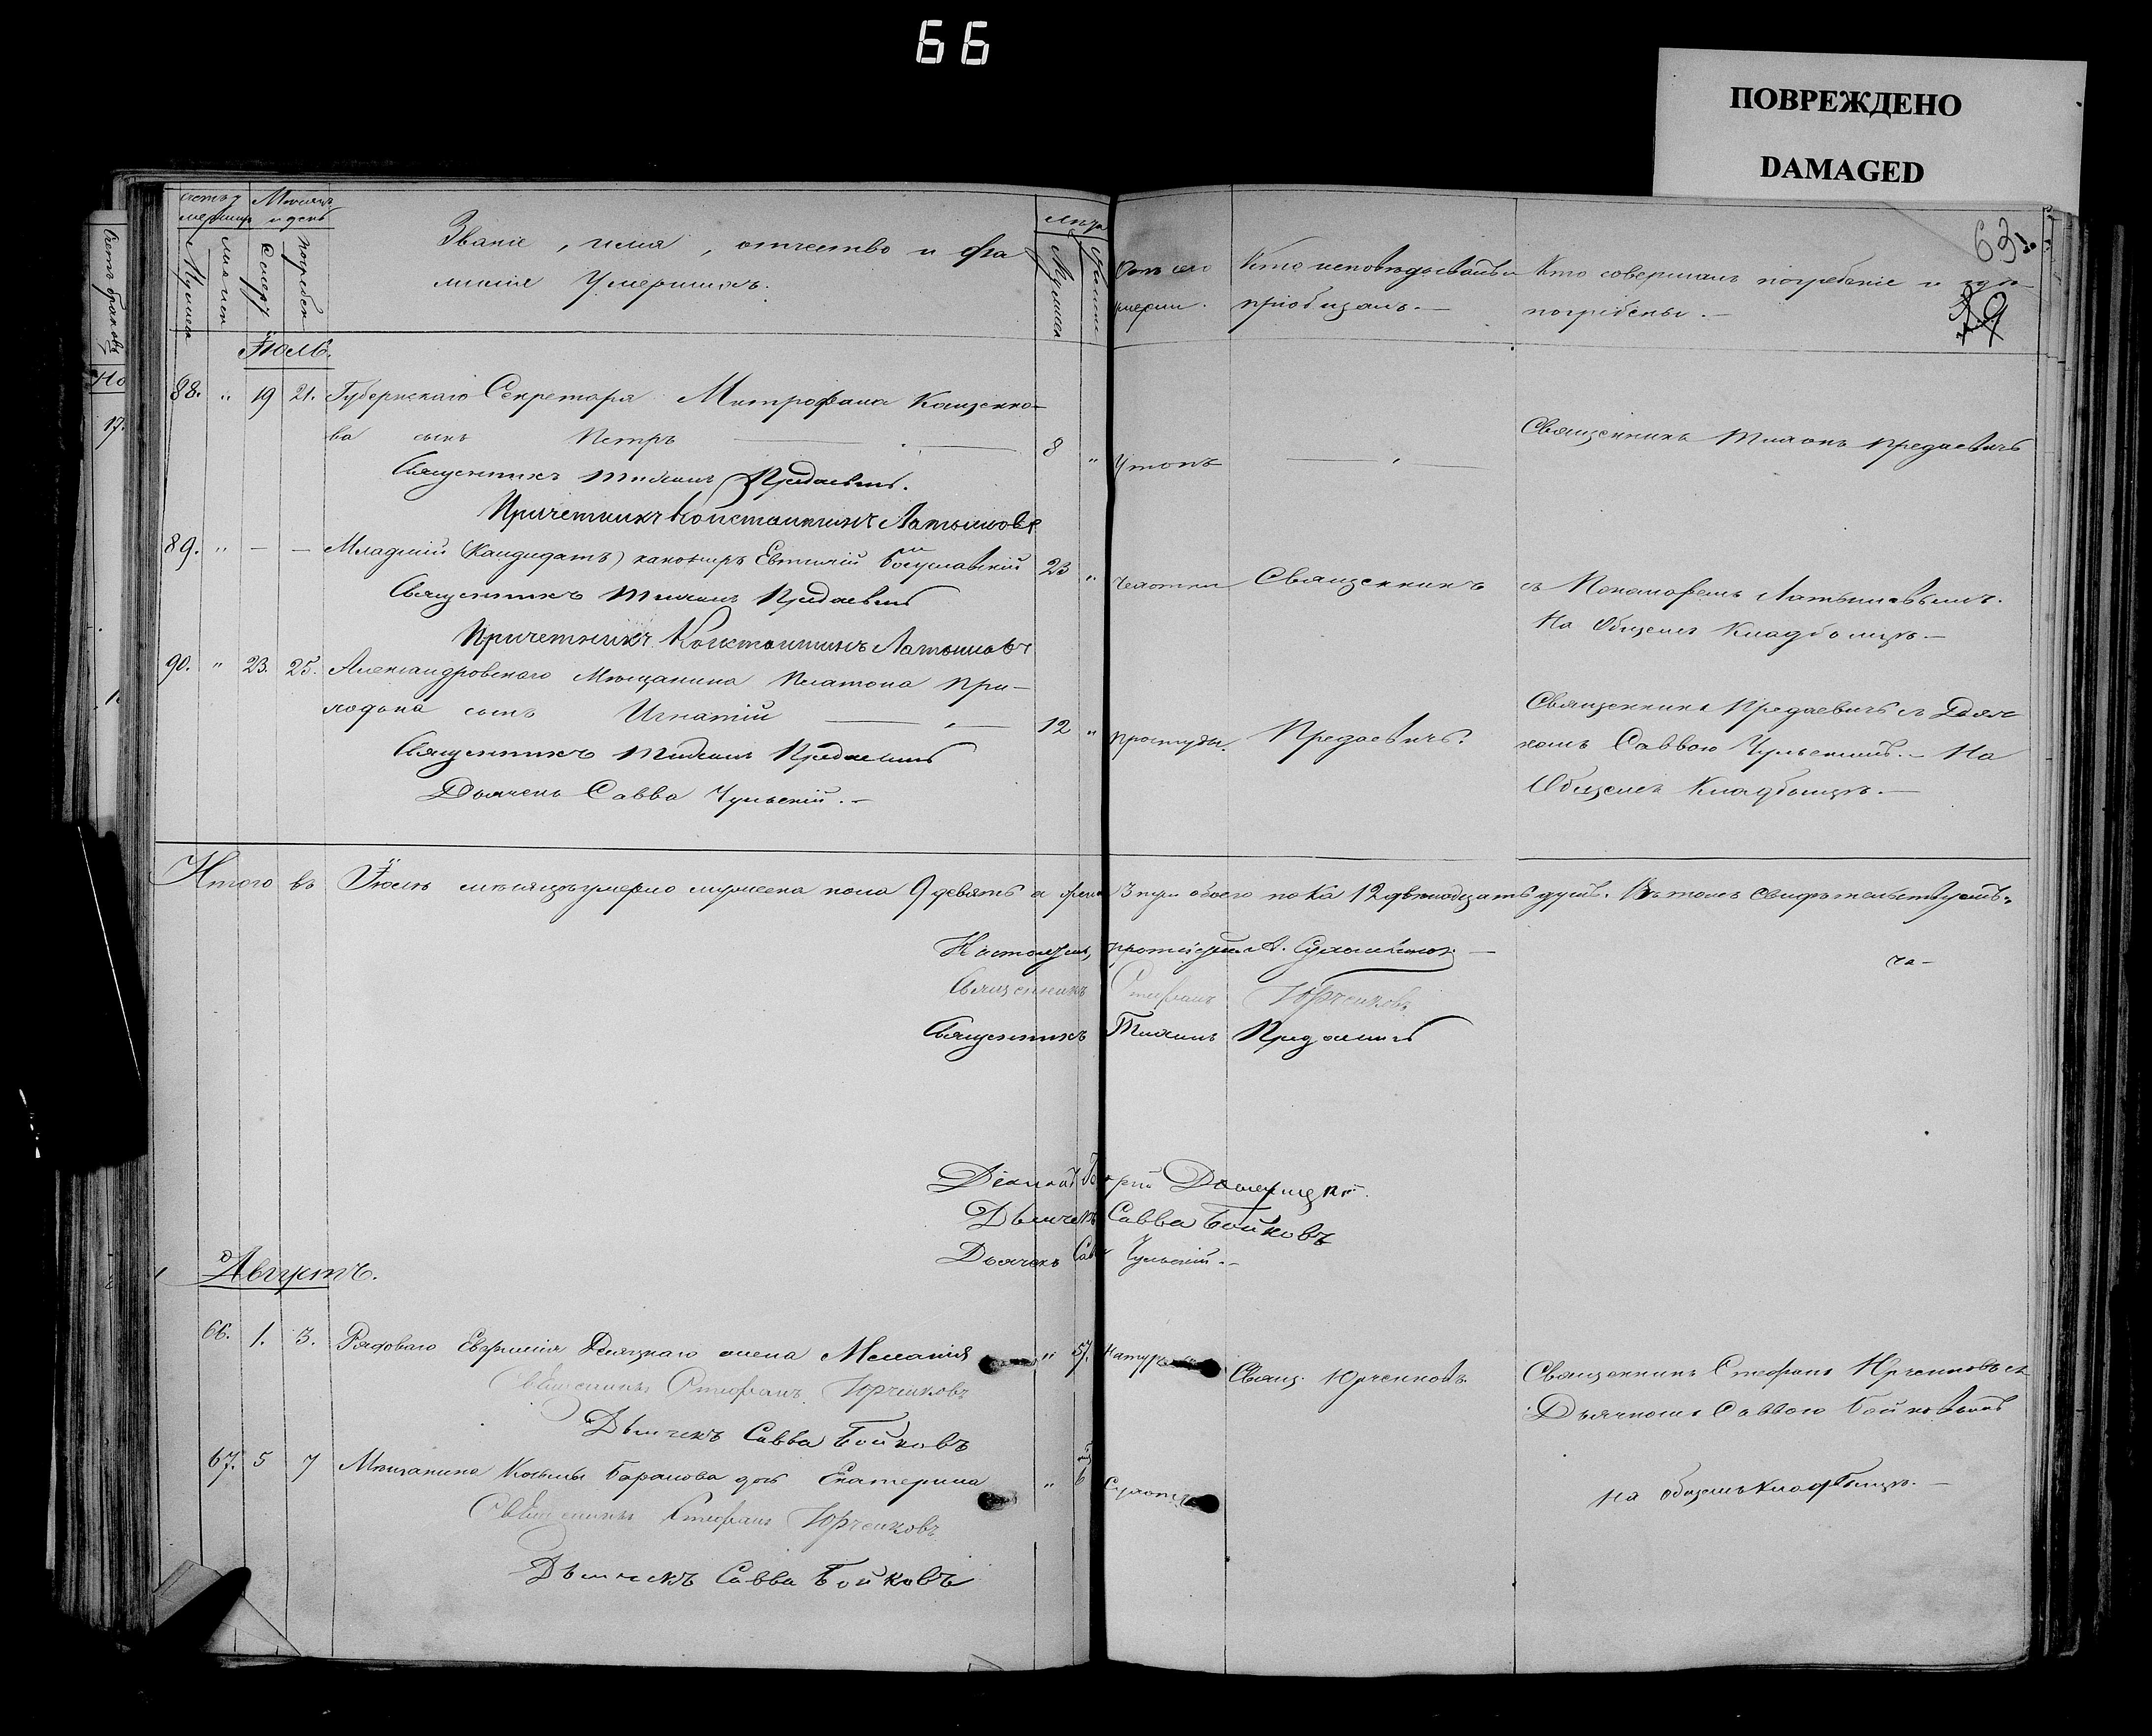 66
ПОВРЕЖДЕНО
DAMAGED
63
Званіе, имя, отчество и фа
милія Умершихъ.
Мѣсяцъ и день
Лѣта
Отъ чего
умерли.
Кто исповѣдывалъ и
пріобщалъ.
Кто совершалъ погребеніе и гдѣ
погребены.
Іюль.
88. " 19 21. Губернскаго Секретаря Митрофана
ва сынъ Петръ 8 " Утонъ
Священникъ Тихонъ Предаевичъ
Священникъ Тихонъ Предаевичъ.
Причетникъ Константинъ Латышовъ
89. " — — Младшій (Кандидатъ) канониръ Евтихій Богуславскій 23 " Чахотки Священникъ съ Пономаремъ Латышевымъ.
Священникъ Тихонъ Предаевичъ
На Общемъ Кладбищѣ.—
Причетникъ Константинъ Латышовъ
90. " 23. 25. Александровскаго Мѣщанина Платона При-
ходька сынъ Игнатій 12 " простуды. Предаевичъ.
Священникъ Предаевичъ съ Дьяч
комъ Саввою Чульскимъ.— На
Общемъ Кладбищѣ.—
Священникъ Тихонъ Предаевичъ
Дьячекъ Савва Чульскій.—
Итого въ Іюлѣ мѣсяцѣ умерло мужеска пола 9 девять а 3 три обоего пола 12 двѣнадцать душъ. Въ томъ свидѣтельствуемъ.
Настоятель, протоіерей А.
Священникъ Стефанъ Юрченковъ
Священникъ Тихонъ Предаевичъ
Діаконъ
Дьячекъ Савва Бойковъ
Дьячекъ Савва Чульскій.—
Августъ.
66. 1. 3. Рядоваго жена Меланія " 57.
Свящ. Юрченковъ
Священникъ Стефанъ Юрченковъ съ
Дьячкомъ Саввою Бойковымъ
Священникъ Стефанъ Юрченковъ
Дьячекъ Савва Бойковъ
67. 5 7 Мѣщанина Козьмы Баранова дочь Екатерина " 6
на общемъ Кладбищѣ.—
Священникъ Стефанъ Юрченковъ
Дьячекъ Савва Бойковъ